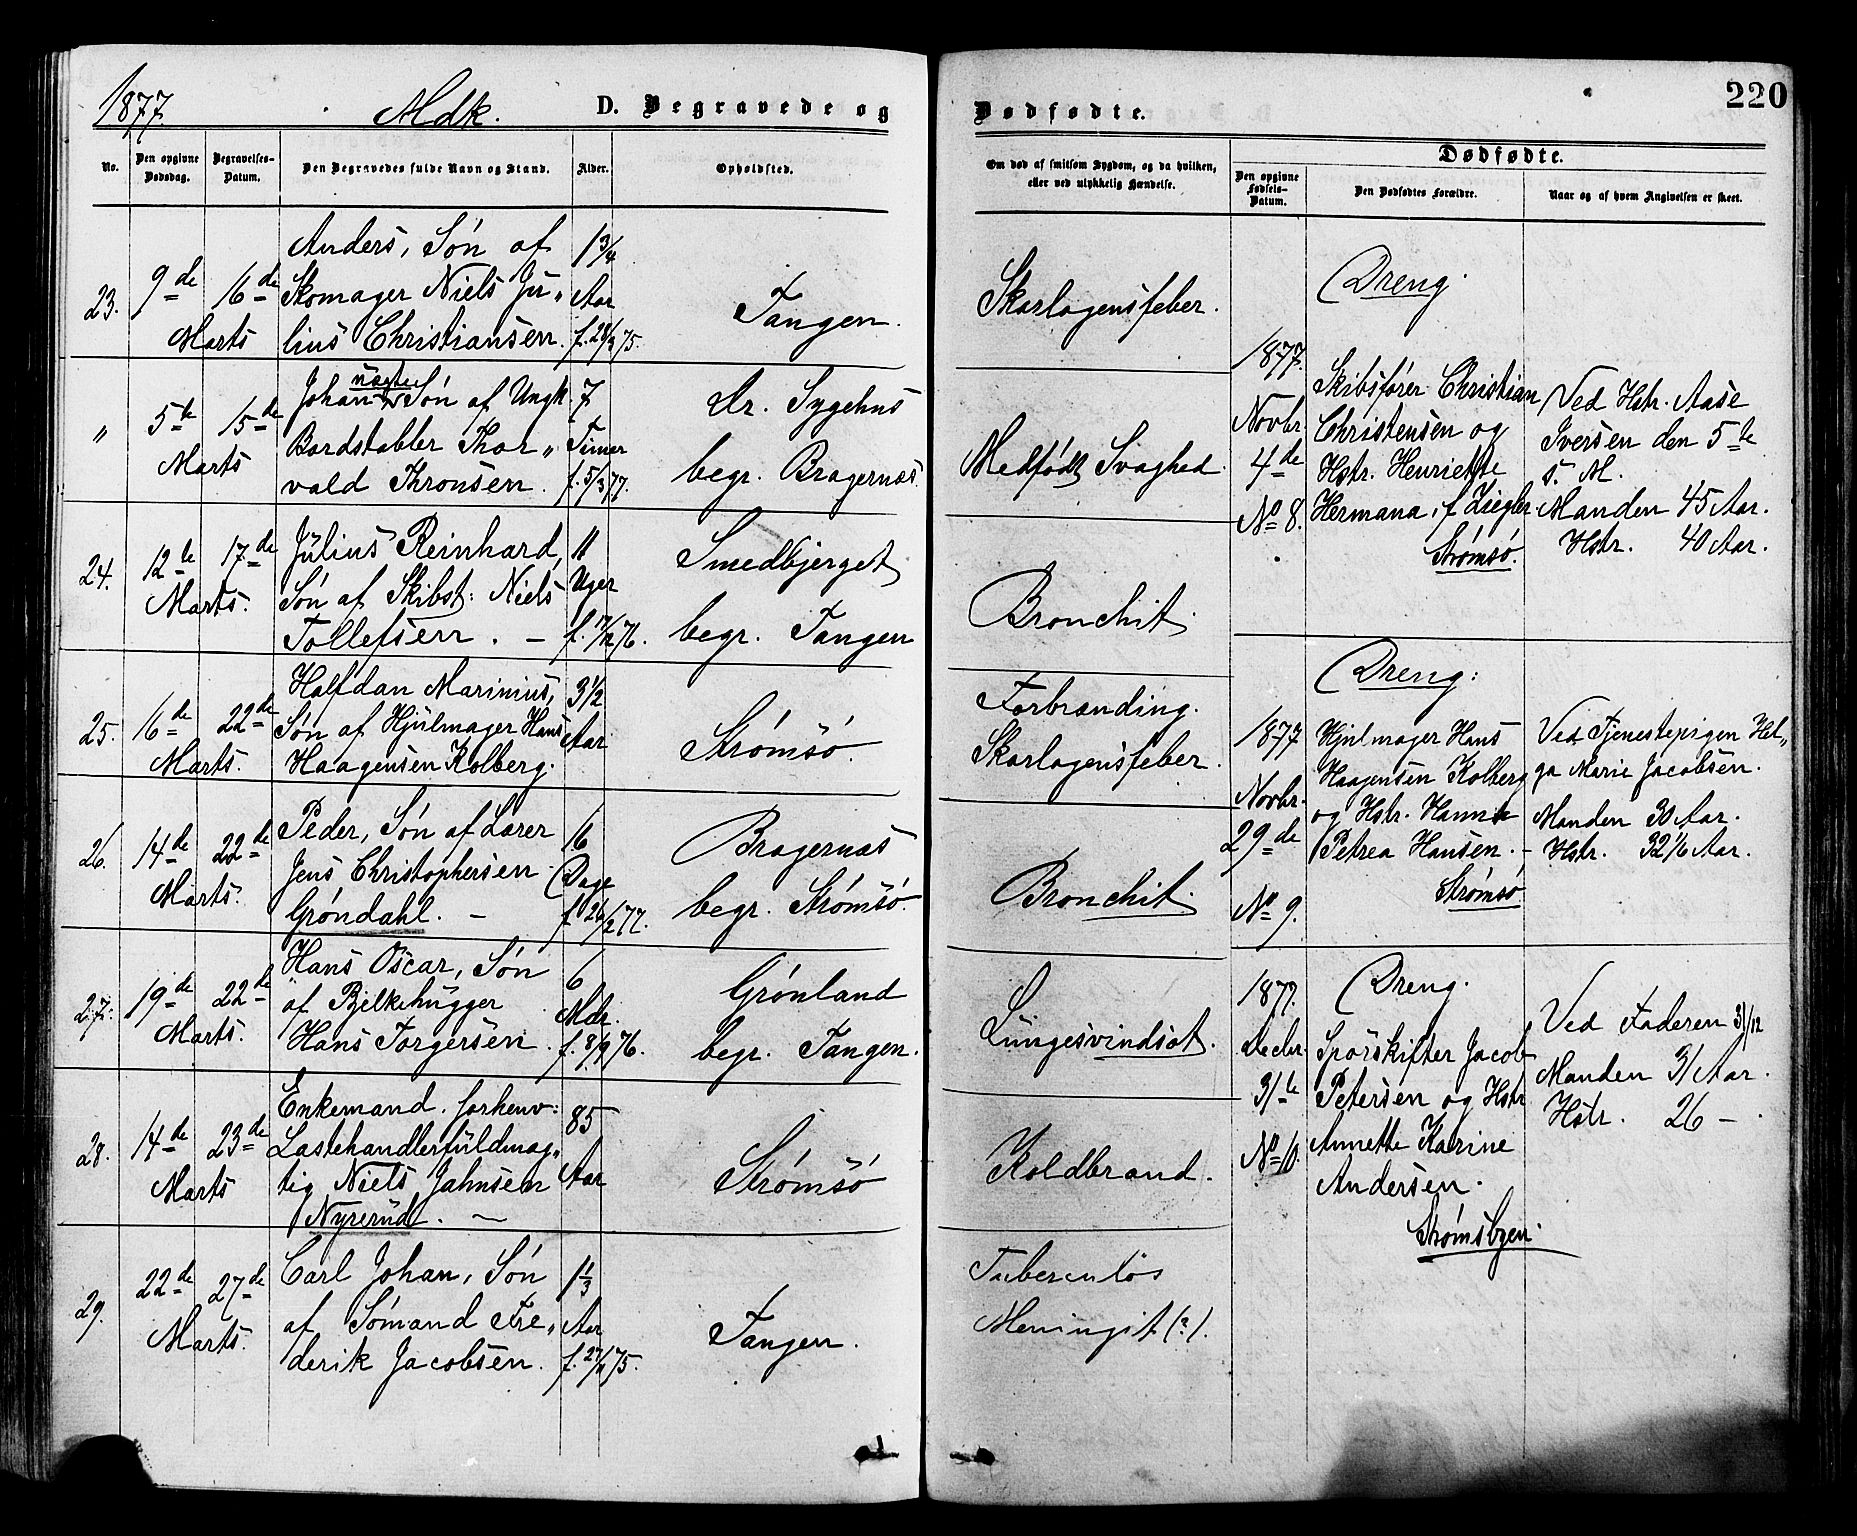 1877.
Mdk.
D. Begravede og
No.
Den opgivne
Dødsdag.
Begravelses-
Datum.
Den Begravedes fulde Navn og Stand.
Alder.
Opholdssted.
23.
9de
Marts
16de
Anders, Søn af
Skomager Niels Ju„
lius Christiansen.
1 3/4
Aar
Tangen.
„
5te
Marts
15de
Johan Søn af Ungk.
Bordstabler Thor„
vald Thronsen.
7
Timer
f. 5/3 77.
Dr. Sygehus
begr. Bragernæs.
24.
12te
Marts.
17de
Julius Reinhard,
Søn af Skibst: Niels
Tollefsen. —
11
Uger
f. 17/12 76.
Smedbjerget
begr. Tangen
25.
16de
Marts.
22de
Halfdan Marinius,
Søn af Hjulmager Hans
Haagensen Kolberg.
3 1/2
Aar
Strømsö.
26.
14de
Marts.
22de
Peder, Søn af Lærer
Jens Christophersen
Gröndahl. —
16
Dage
f. 26/2 77.
Bragernæs
begr. Strømsö.
27.
19de
Marts.
22de
Hans Oscar, Søn
af Bjelkehugger
Hans Torgersen.
6
Mdr.
f. 8/9 76.
Grønland
begr. Tangen.
28.
14de
Marts
23de
Enkemand. forhenv:
Lastehandlerfuldmæg„
tig Niels Jahnsen
Nyrerud. —
85
Aar
Strømsö
29.
22de
Marts.
27de
Carl Johan, Søn
af Sømand Fre„
derik Jacobsen.
1 1/3
Aar
f. 27/11 75.
Tangen.
Dødfødte.
220
Om død af smitsom Sygdom, og da hvilken,
eller ved ulykkelig Hændelse.
Dødfødte.
Den opgivne
Fødsels-
Datum.
Den Dødfødtes Forældre.
Naar og af hvem Angivelsen er skeet.
Skarlagensfeber.
Medfødt Svaghed.
Bronchit.
Forbrænding.
Skarlagensfeber.
Bronchit.
Lungesvindsot.
Koldbrand.
Tuberculøs
Meningit (?).
1877.
Novbr.
4de
No 8.
Dreng.
Skibsfører Christian
Christensen og
Hstr. Henriette
Hermana, f. Ziegler.
Strømsö.
Ved Hstr. Aase
Iversen den 5te
s. M.
Manden 45 Aar.
Hstr. 40 Aar.
1877
Novbr.
29de
No 9.
Dreng.
Hjulmager Hans
Haagensen Kolberg
og Hstr. Hanna
Petrea Hansen. —
Strømsö
Ved Tjenestepigen Hel„
ga Marie Jacobsen.
Manden 30 Aar.
Hstr. 32 1/6 Aar.
1877.
Decbr.
31te
No 10.
Dreng.
Sporskifter Jacob
Petersen og Hstr
Annette Karine
Andersen.
Strømsbyen.
Ved Faderen 31/12
Manden 31 Aar.
Hstr. 26 —